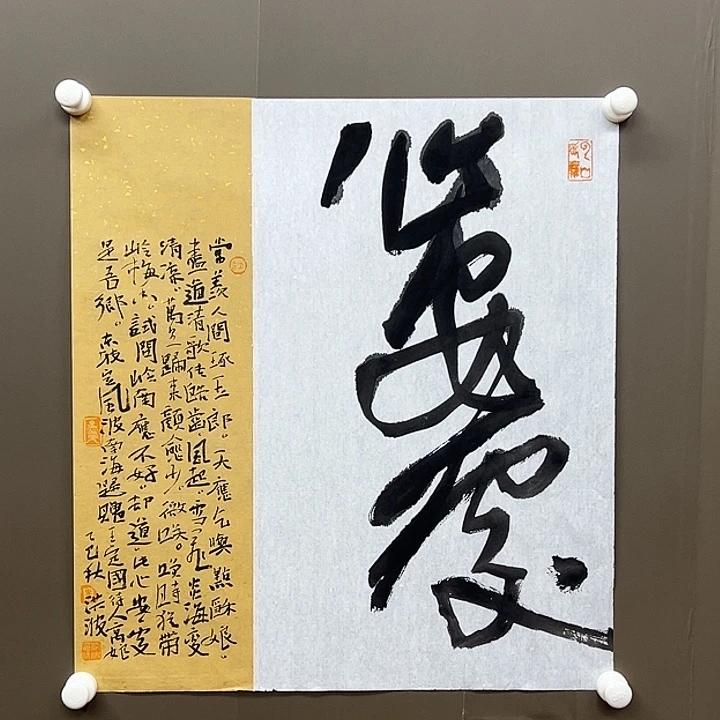 心安處
常羨人間琢玉郎。天應乞與點酥娘。
盡道清歌传皓齒。風起。雪飛炎海變
清涼。萬里歸來顏愈少。微咲。咲時猶带
嶺梅香。試問嶺南應不好。却道此心安處
是吾鄉。東坡定風波南海歸贈王定國侍人寓娘
乙巳秋 洪波